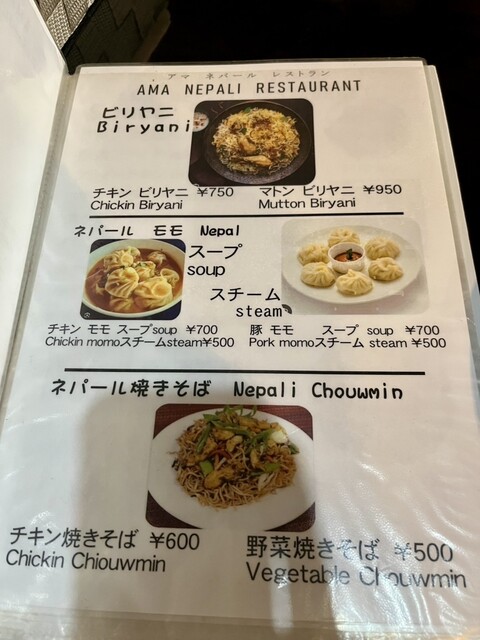 アマ ネパール レストラン
AMA NEPALI RESTAURANT
ビリヤニ
Biryani
チキン ビリヤニ ¥750 マトン ビリヤニ ¥950
Chickin Biryani Mutton Biryani
ネパール モモ Nepal
スープ
soup
スチーム
steam
チキン モモ スープsoup ¥700 豚 モモ スープ soup ¥700
Chickin momoスチームsteam¥500 Pork momoスチーム steam ¥500
ネパール焼きそば Nepali Chouwmin
チキン焼きそば ¥600 野菜焼きそば ¥500
Chickin Chiouwmin Vegetable Chouwmin